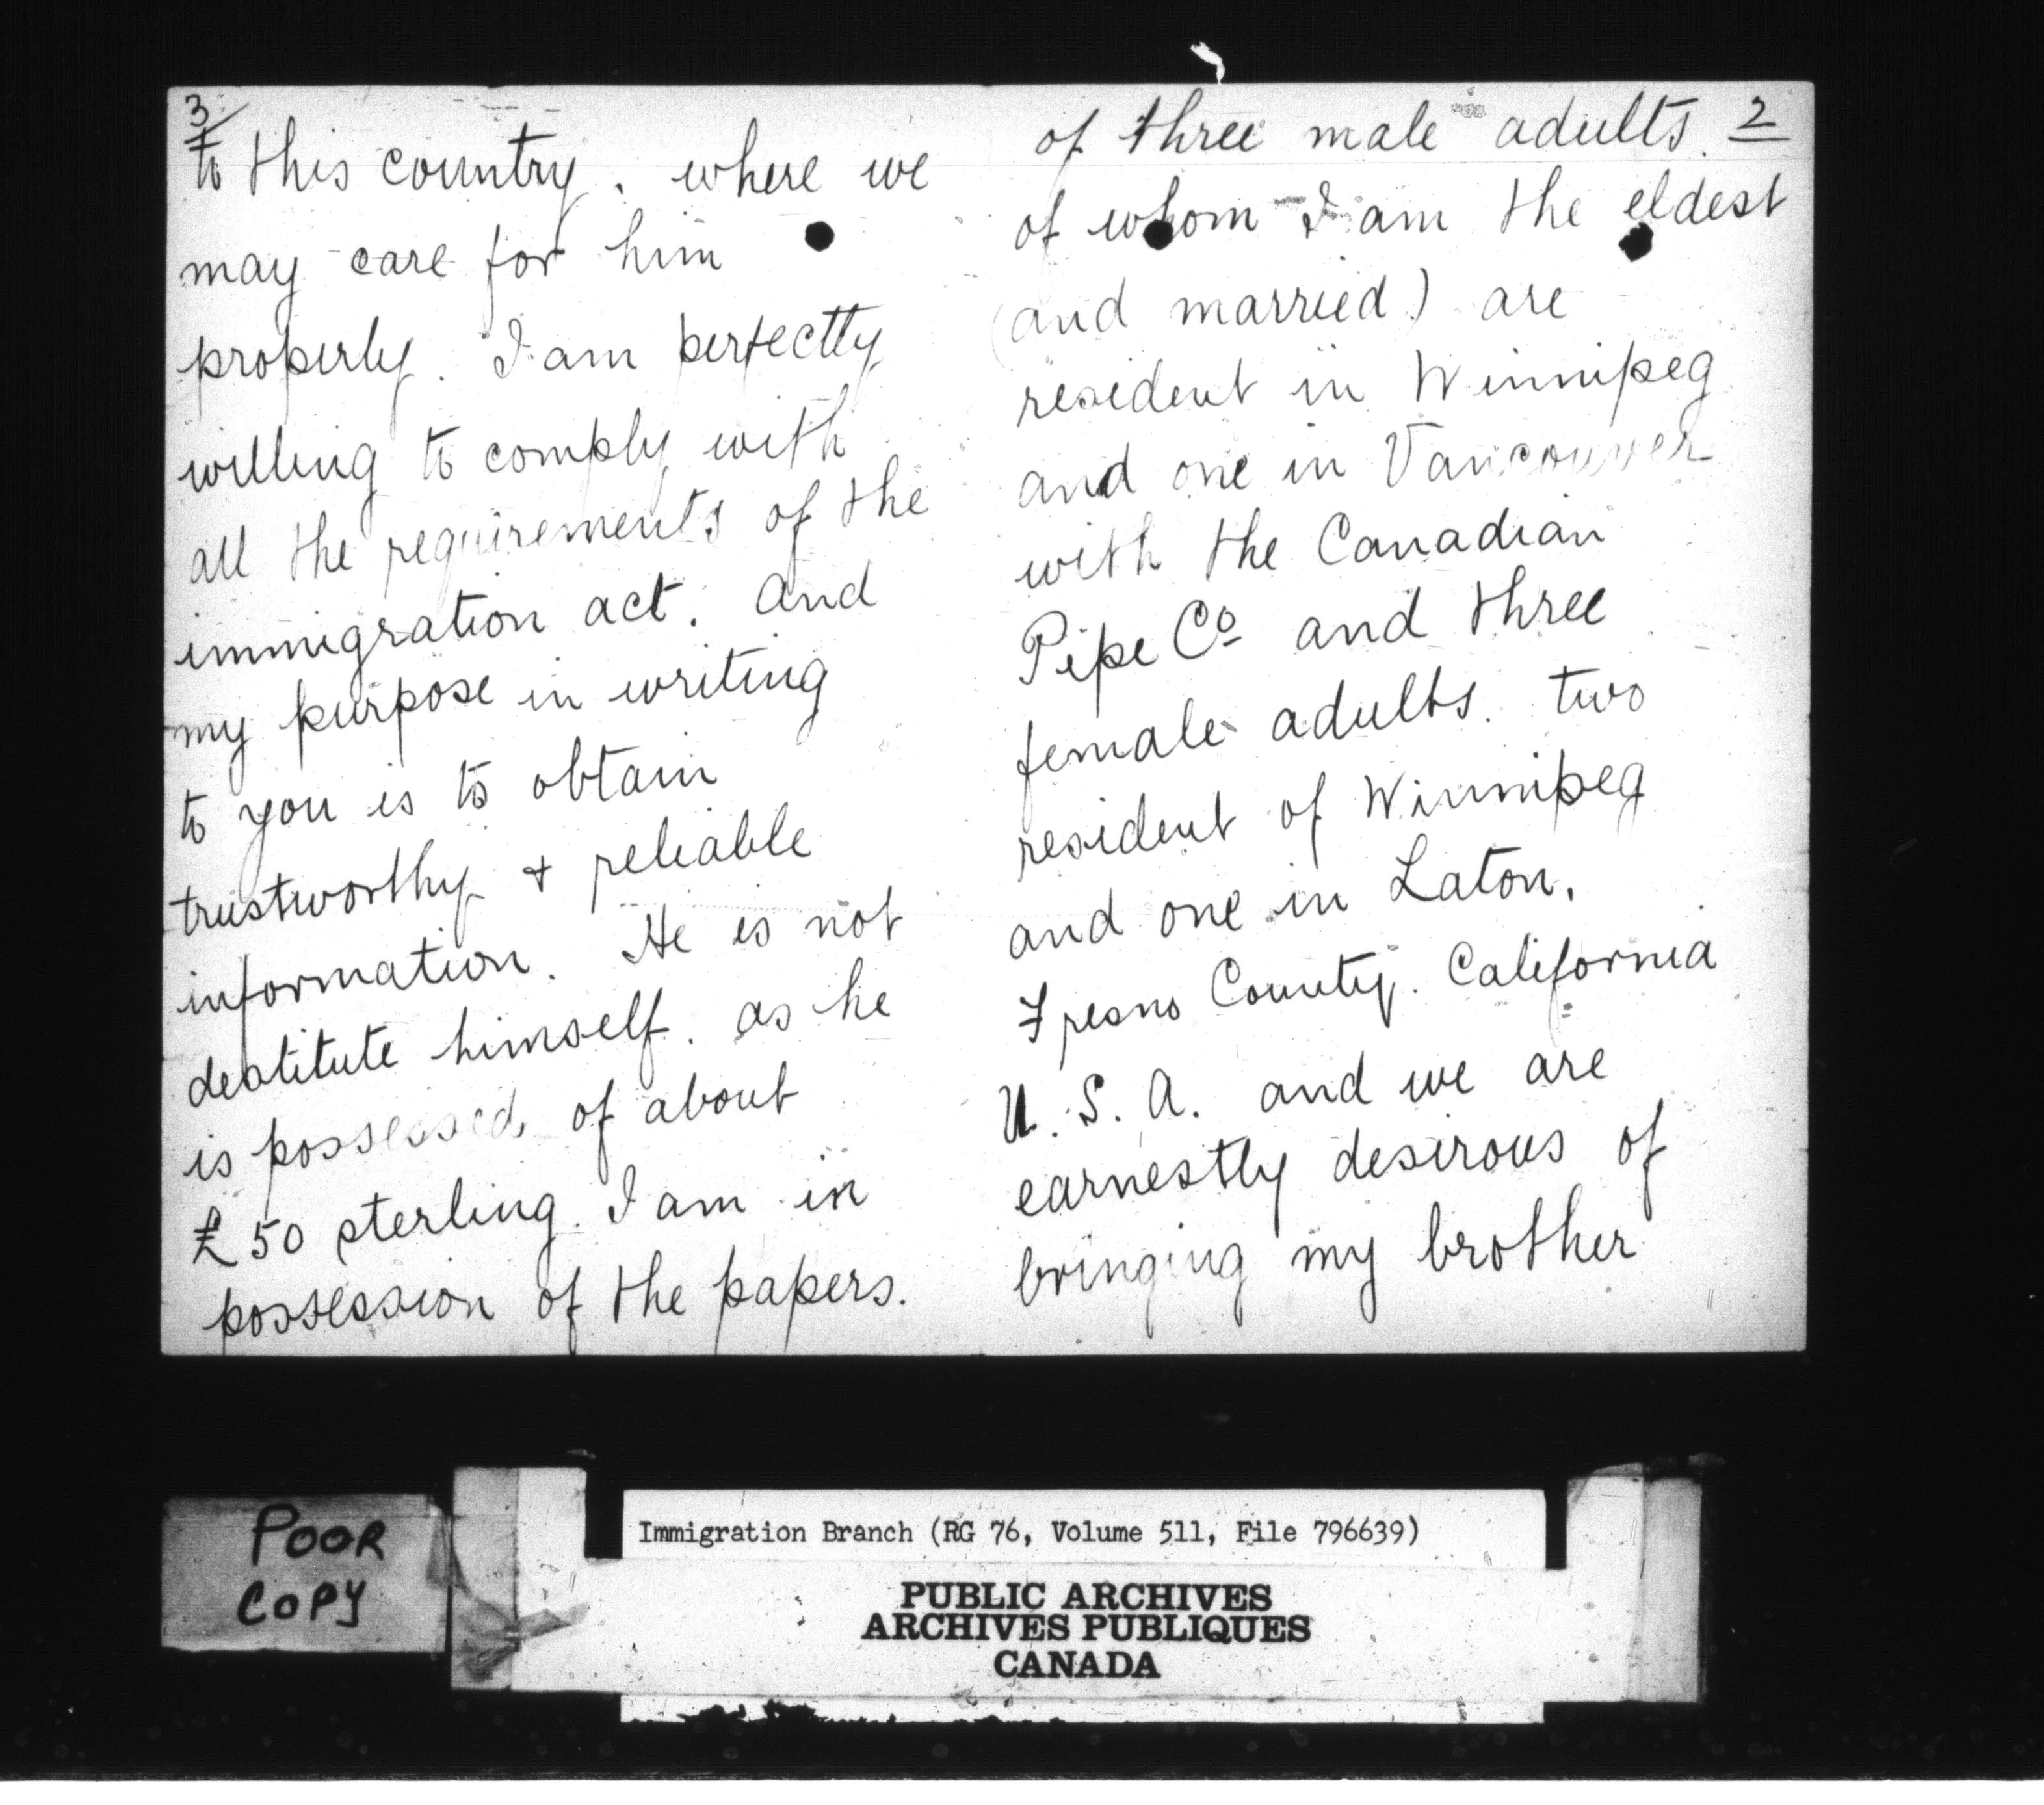 2
of three male adults.
of whom I am the eldest
(and married) are
resident in Winnipeg
and one in Vancouver
with the Canadian
Pipe Co and three
female adults. two
resident of Winnipeg
and one in Laton.
Fresno County. California
U. S. A. and we are
earnestly desirous of
bringing my brother
3
to this country. where we
may care for him
properly. I am perfectly
willing to comply with
all the requirements of the
immigration act. and
my purpose in writing
to you is to obtain
trustworthy + reliable
information. He is not
destitute himself. as he
is possessed of about
£50 sterling. I am in
possession of the papers.
POOR
COPY
Immigration Branch (RG 76, Volume 511, File 796639)
PUBLIC ARCHIVES
ARCHIVES PUBLIQUES
CANADA